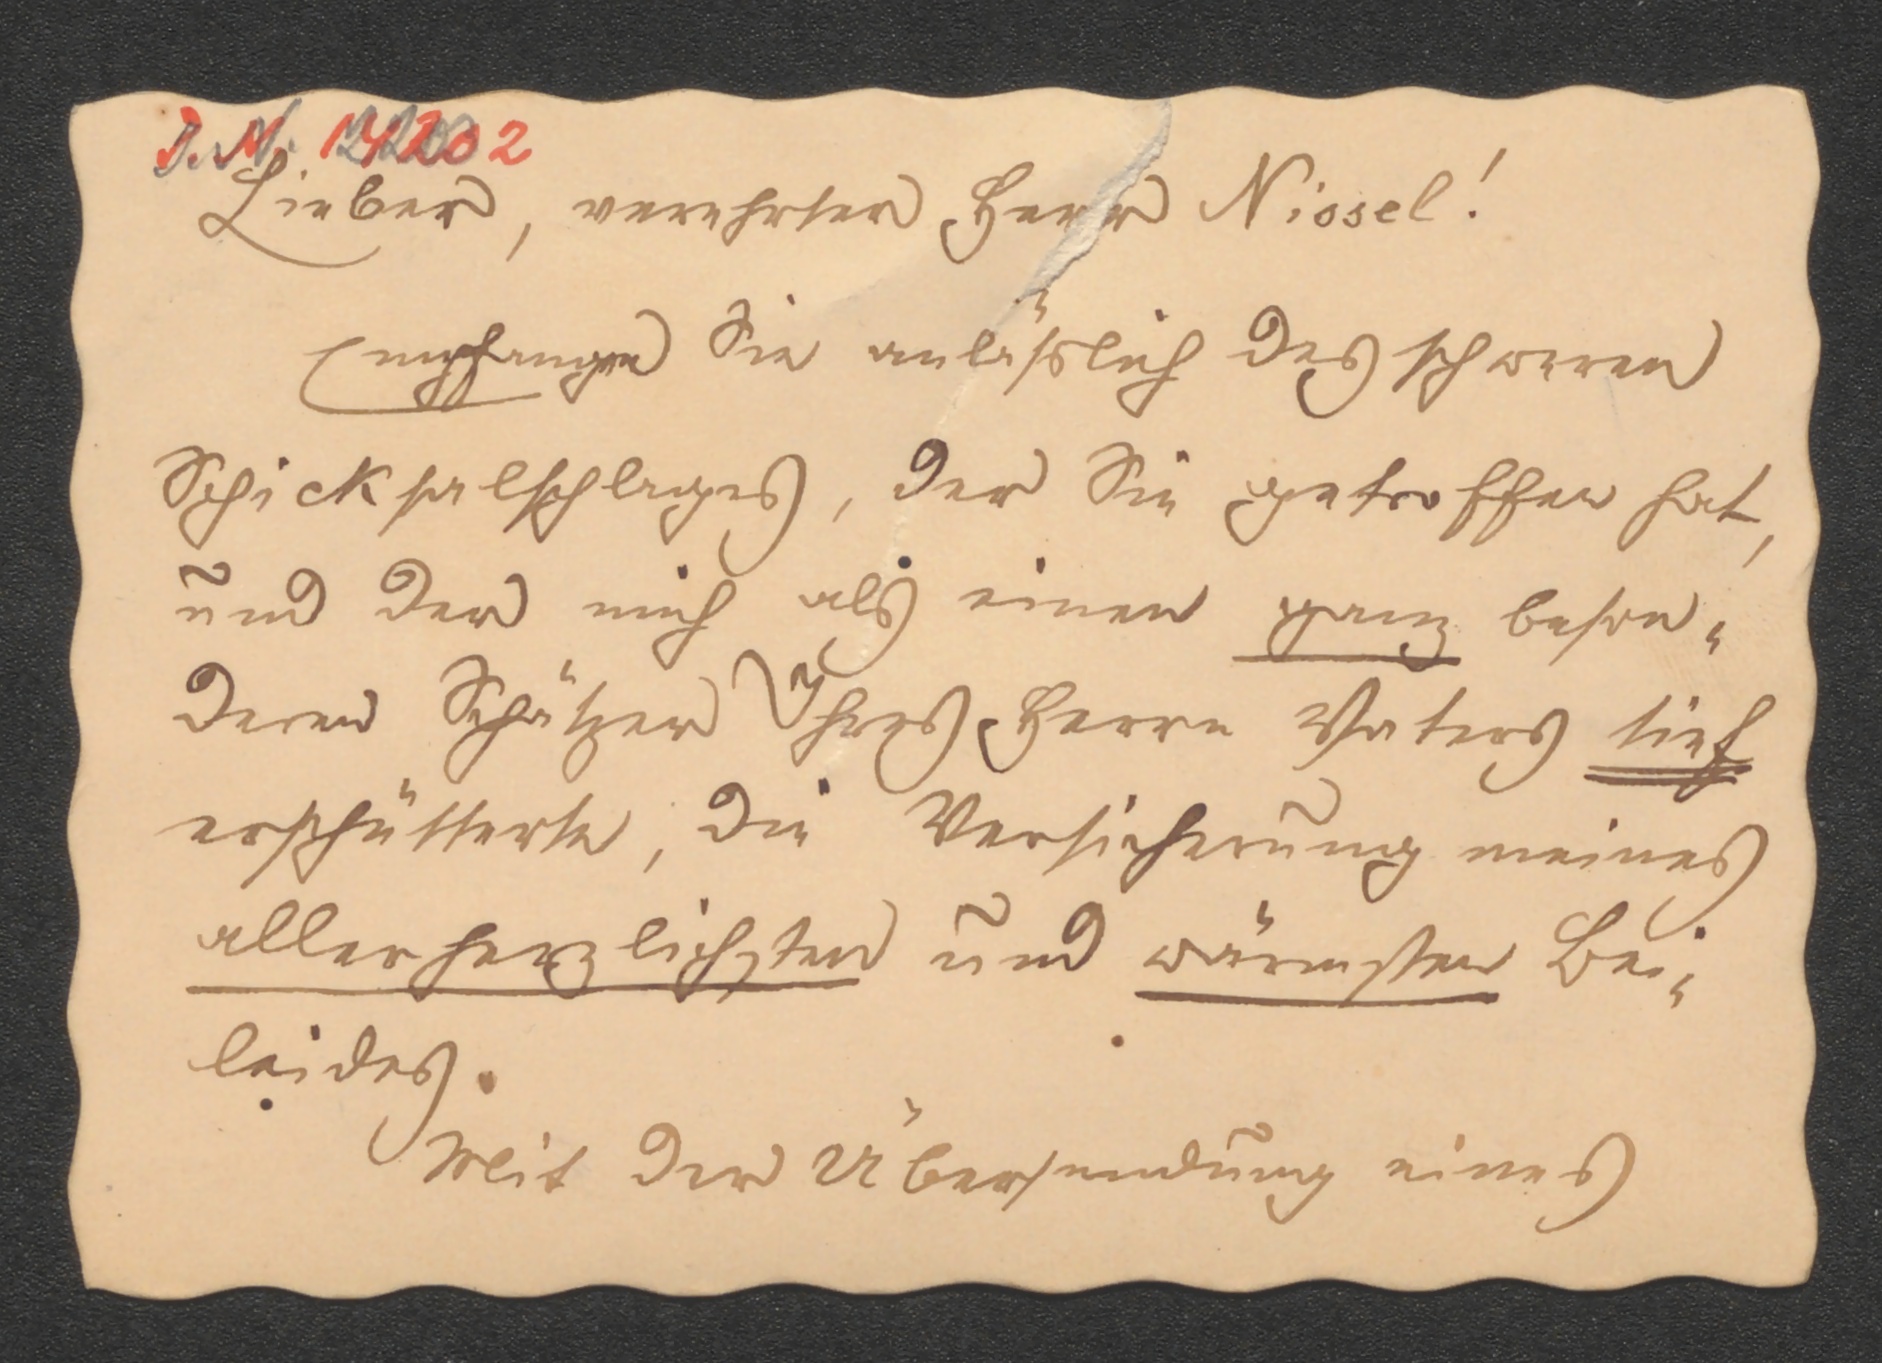 Lieber, verehrter Herr Nissel!
Empfangen Sie anläßlich des schweren
Schicksalschlages, der Sie getroffen hat,
und der mich als einen ganz beson-
deren Schätzer Ihres Herrn Vaters tief
erschütterte, die Versicherung meines
allerherzlichsten und wärmsten Bei-
leides.
Mit der Übersendung eines